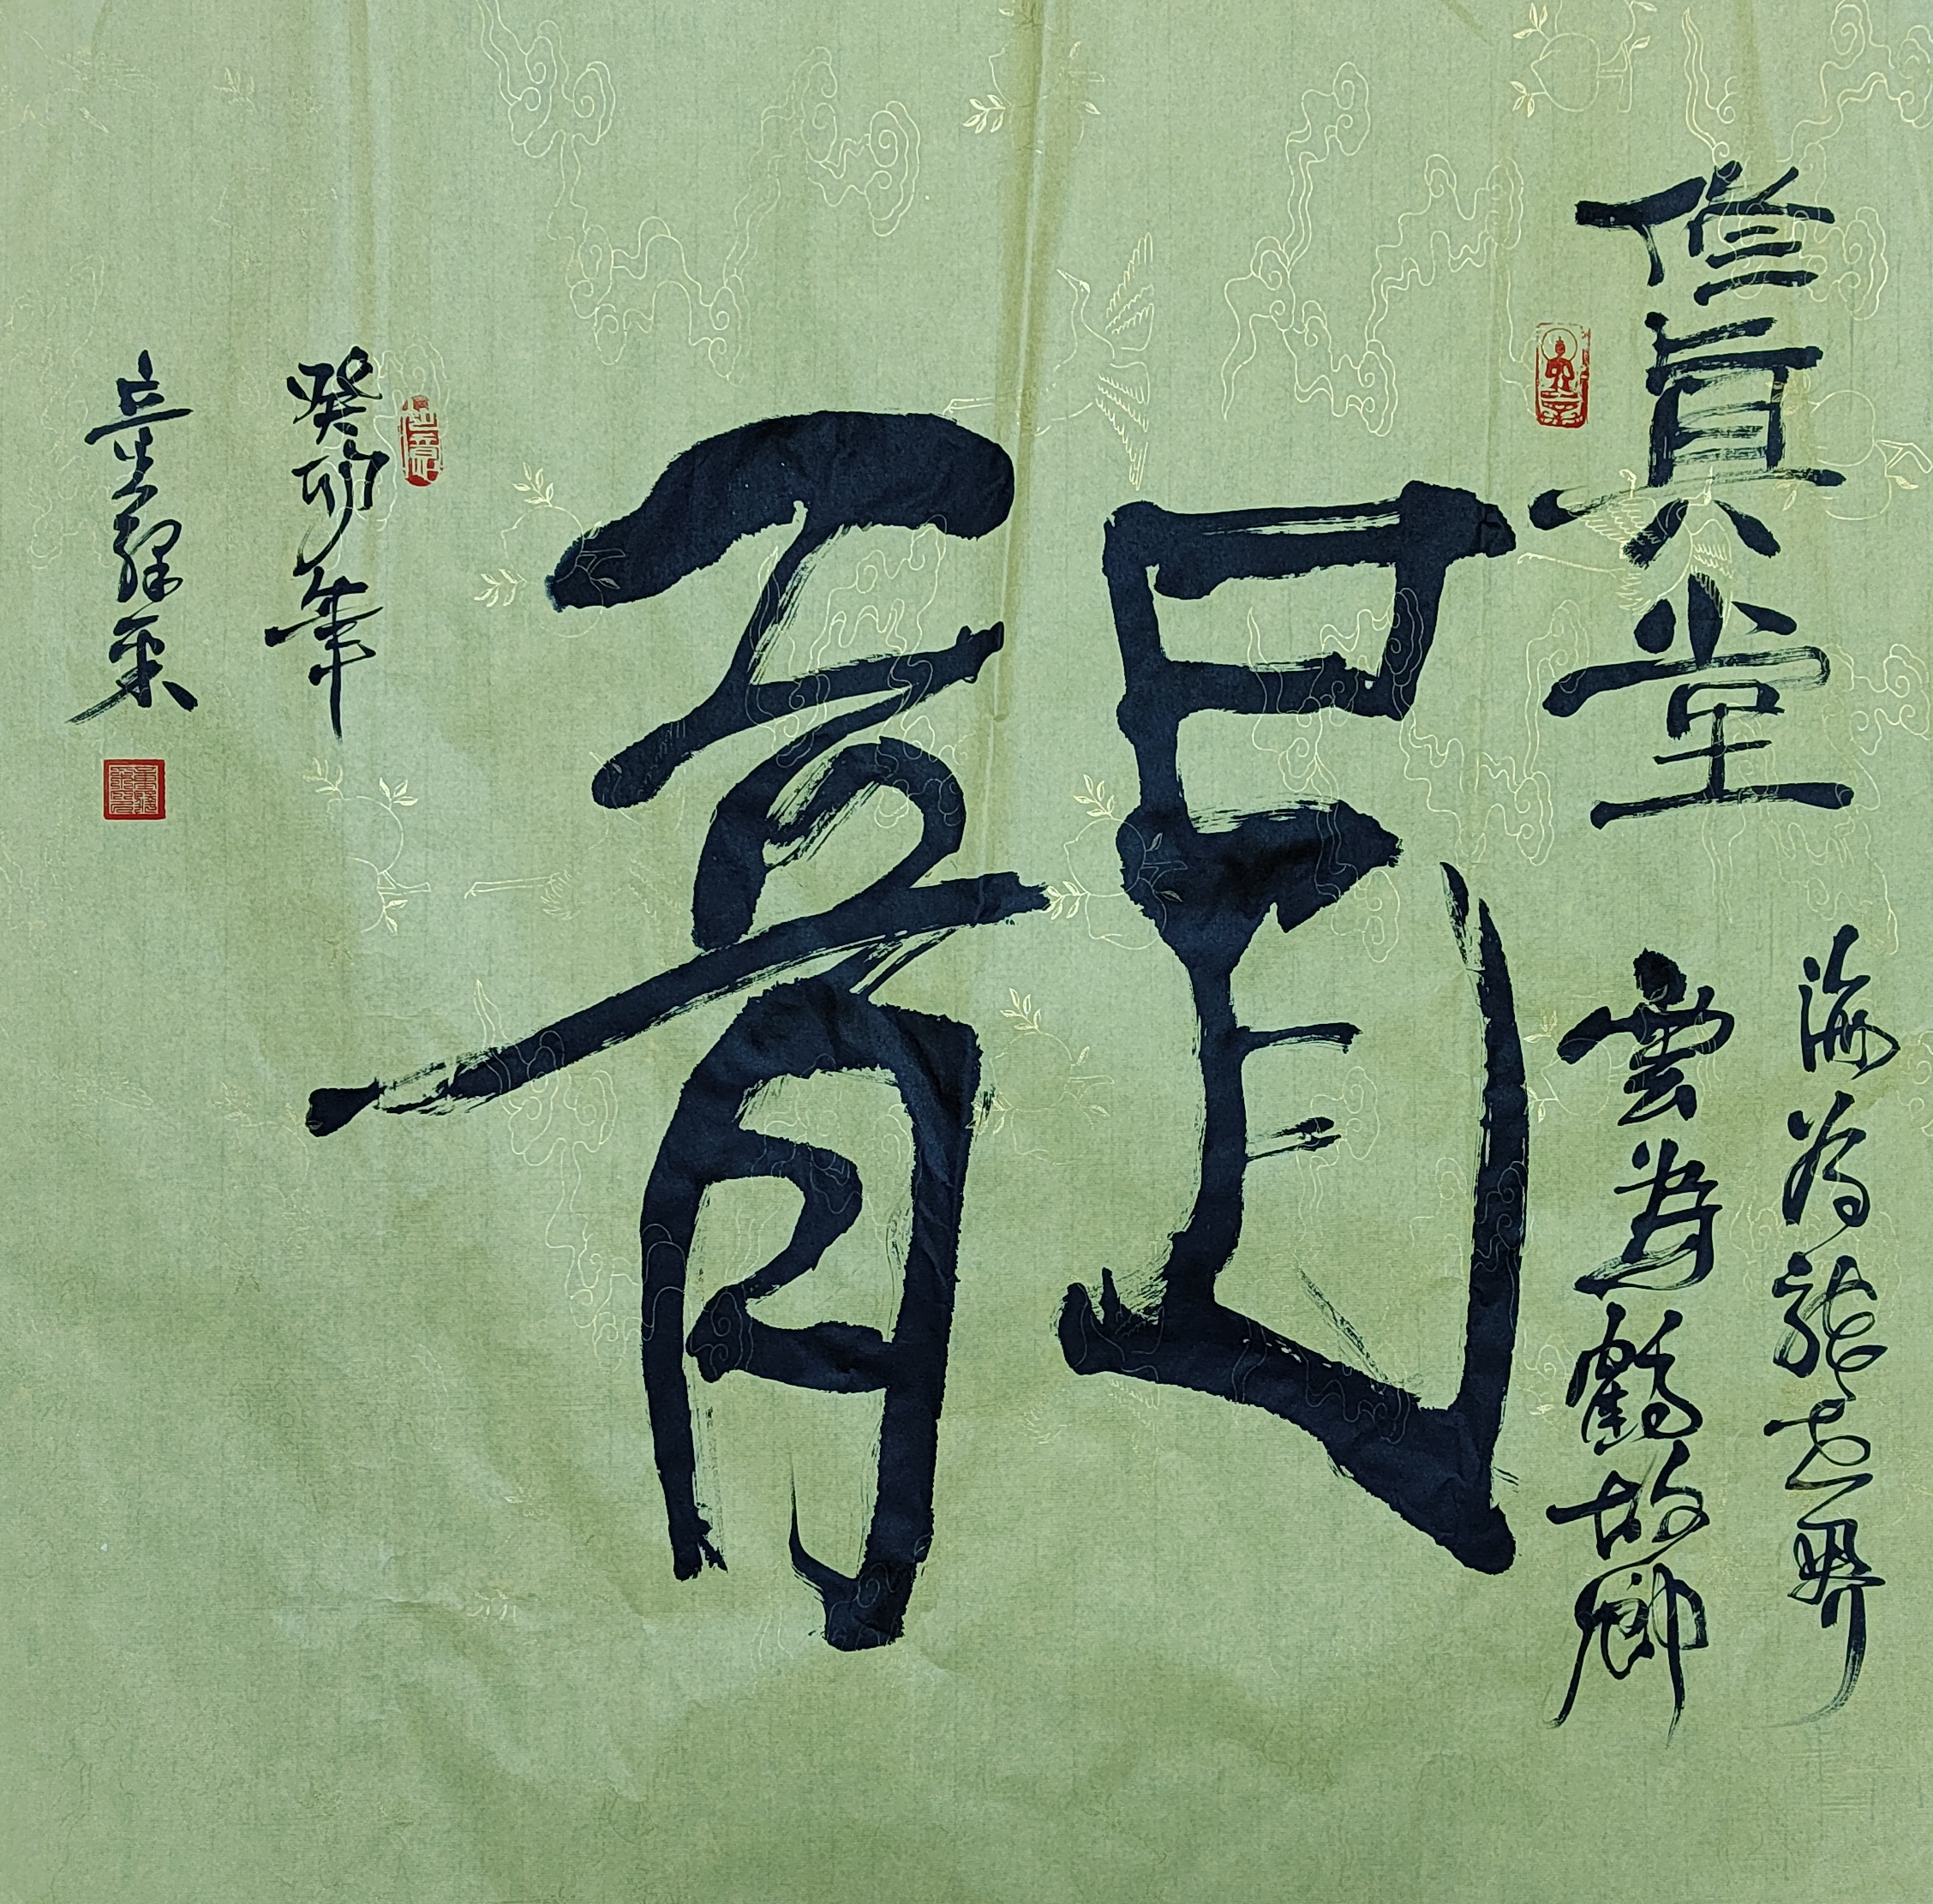 修真堂
海為龍世界
雲為鶴故鄉
龍
癸卯年